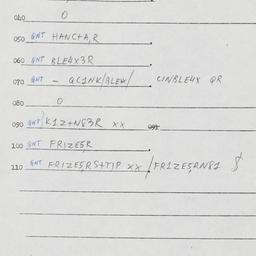 040 O
050 GNT HANC+A,R
060 GNT BLE4X3R
070 GNT - QC1NK/BLEW/ CINBLE4X QR
080 O
090 GNT K1Z+N83R XX
100 GNT FRIZE5R
110 GNT FRIZE5RS+TIP XX /FR1ZE5RN81 $